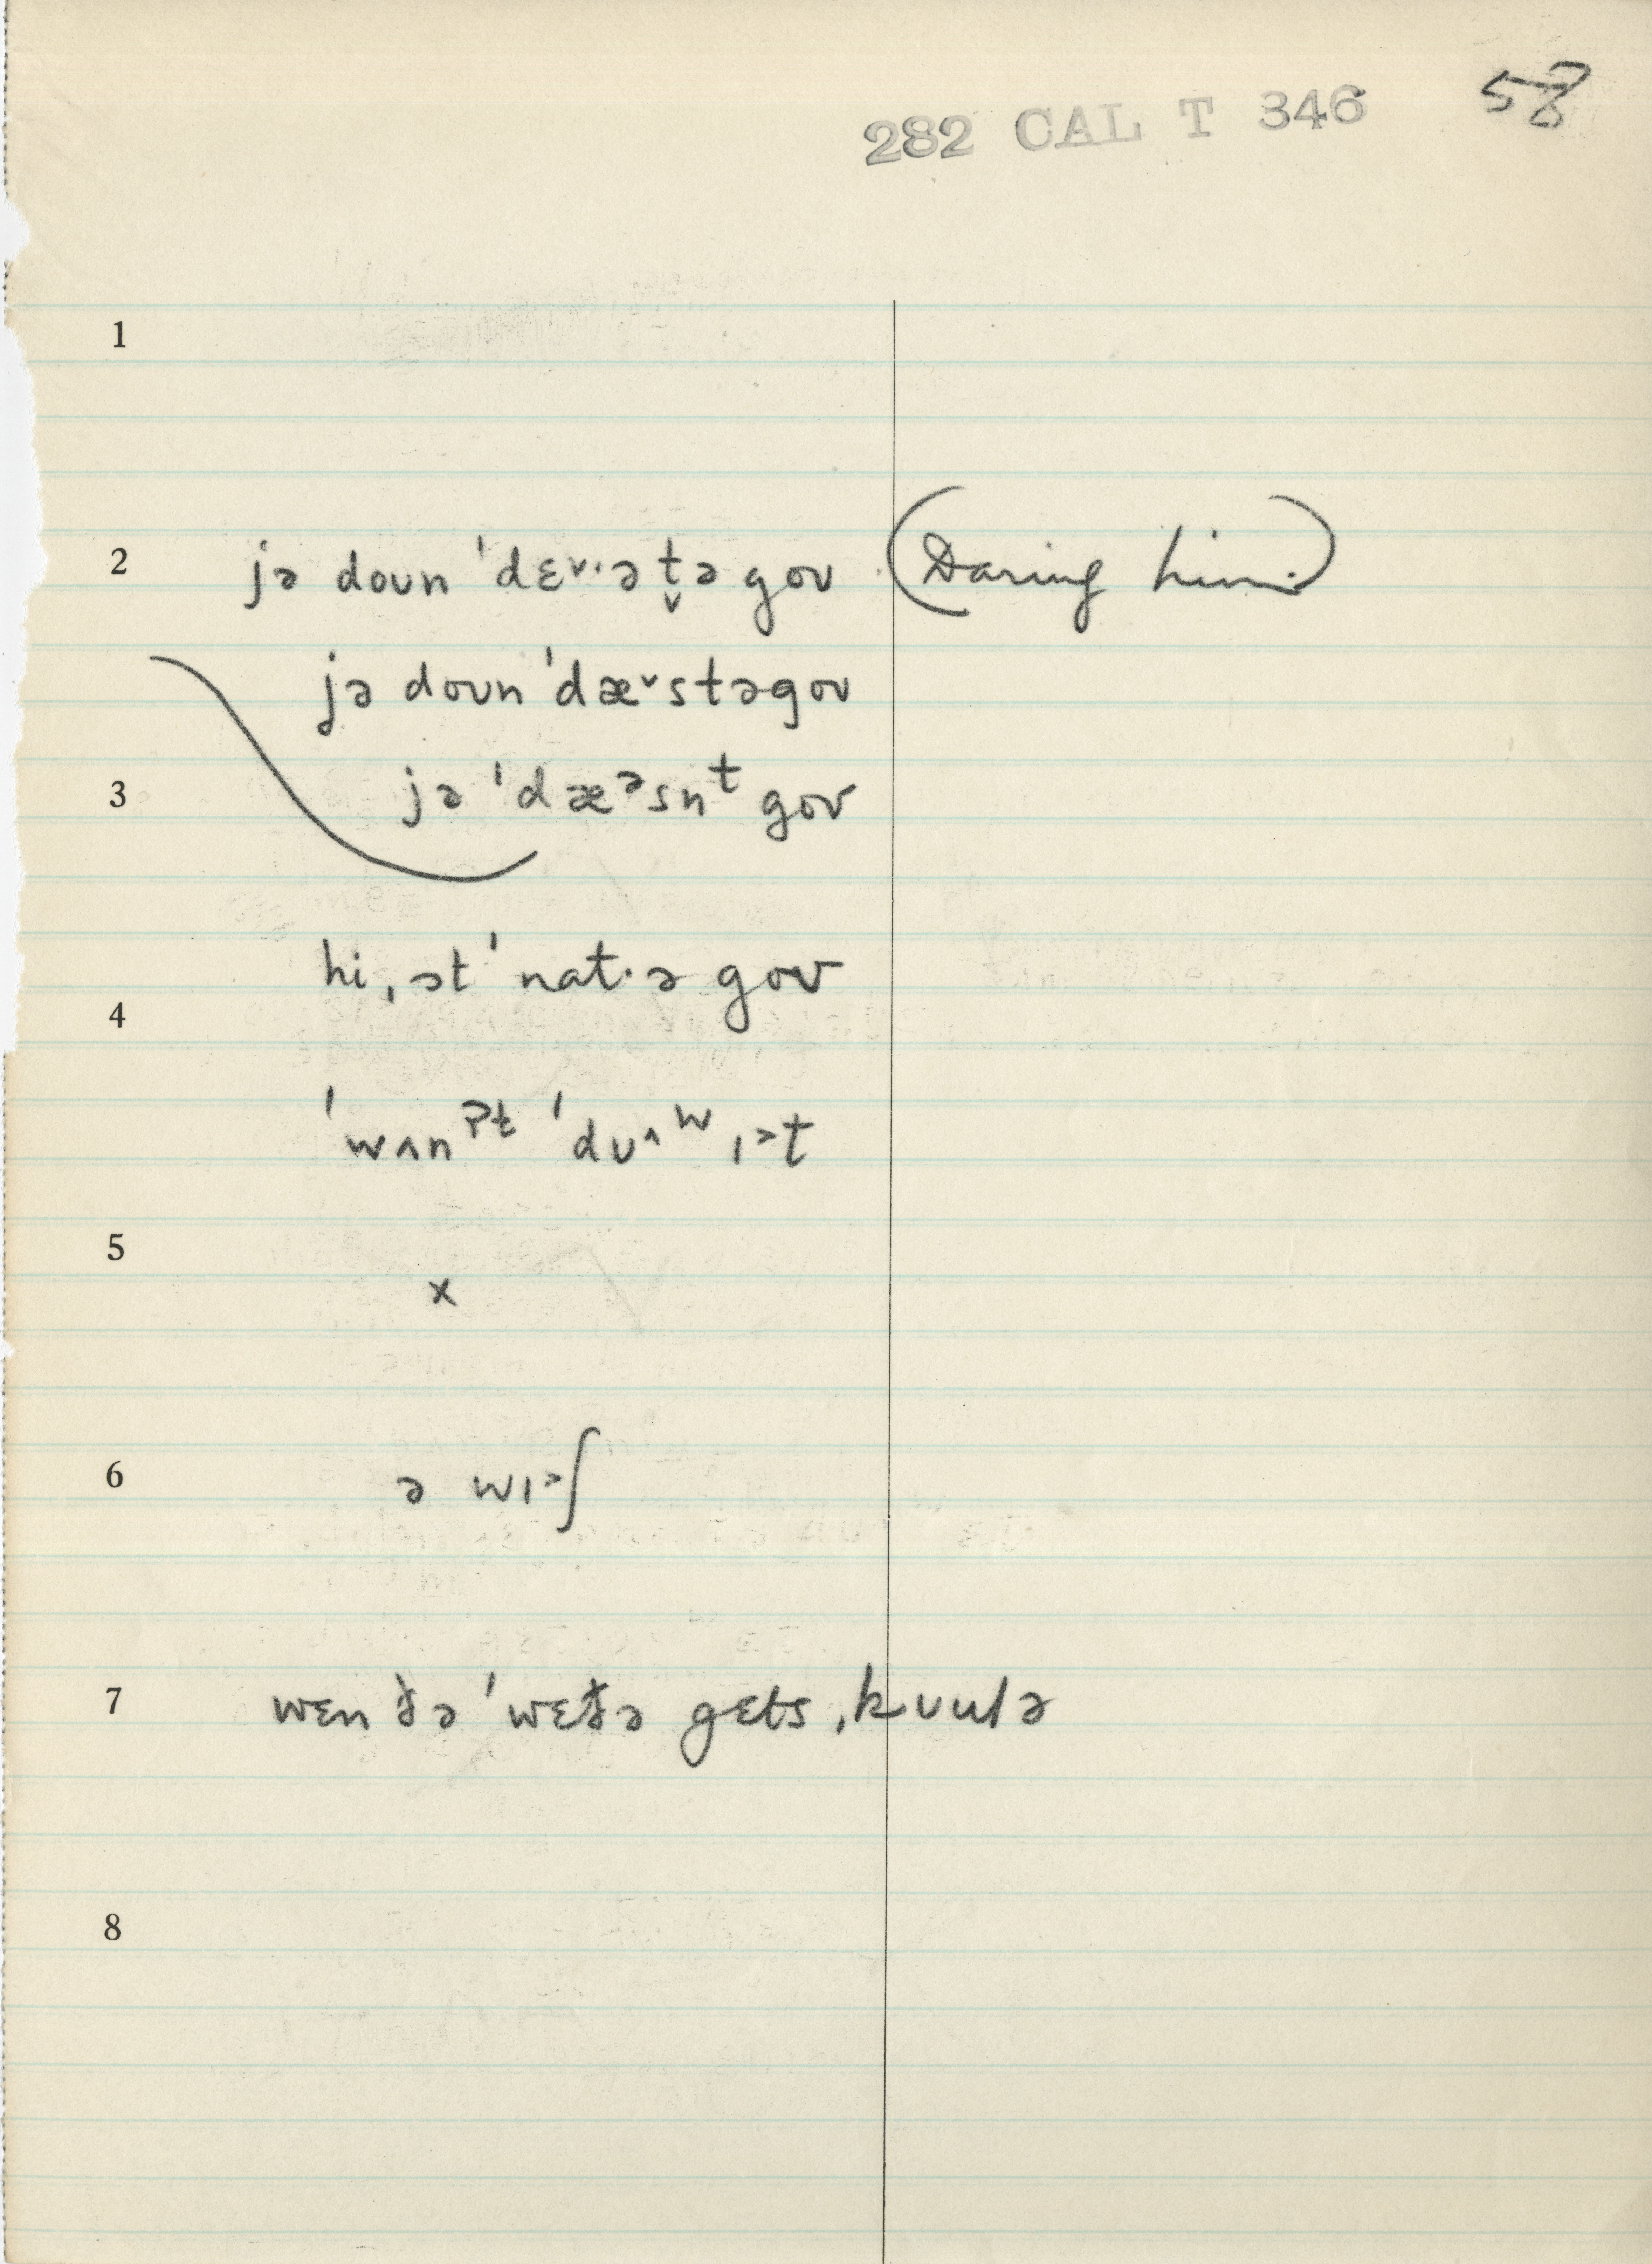 282 CAL T 346 58
1
2 jə doʊn ˈdɛ˅·ə t̬ə goʊ (Daring him.)
jə doʊn ˈdæ˅stəgoʊ
3 jə ˈdæᵊsnᵗ goʊ
hi ˌət ˈnat·ə goʊ
4
ˈwʌnˀᵗ ˈdʊ^ʷ ɪ>t
5
x
6 ə wɪ>ʃ
7 wɛn ðə ˈwɛðə gɛts ˌkʊulə
8